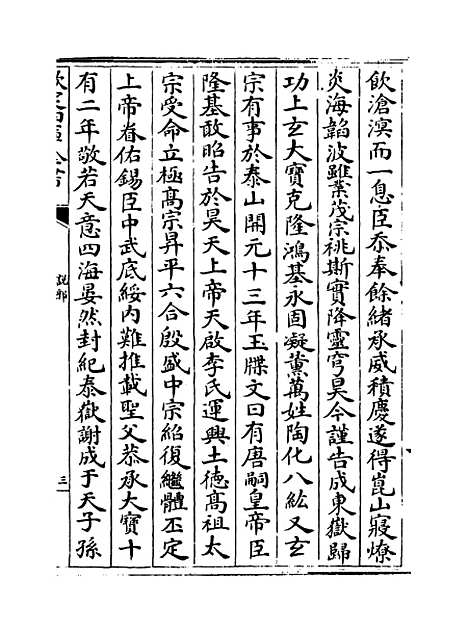 飲滄溟而一息臣忝奉餘緒承威積慶遂得崑山寢燎
炎海韜波雖業茂宗祧斯實降靈穹昊今謹告成東嶽歸
功上𤣥大寶克隆鴻基永固凝薰萬姓陶化八紘又𤣥
宗有事於泰山開元十三年玉牒文曰有唐嗣皇帝臣
隆基敢昭告於昊天上帝天啟李氏運興土徳髙祖太
宗受命立極髙宗昇平六合殷盛中宗紹復繼體丕定
上帝眷佑錫臣中武底綏内難推載聖父恭承大寶十
有二年敬若天意四海晏然封紀泰嶽謝成于天子孫
欽定四庫全書
説郛
三